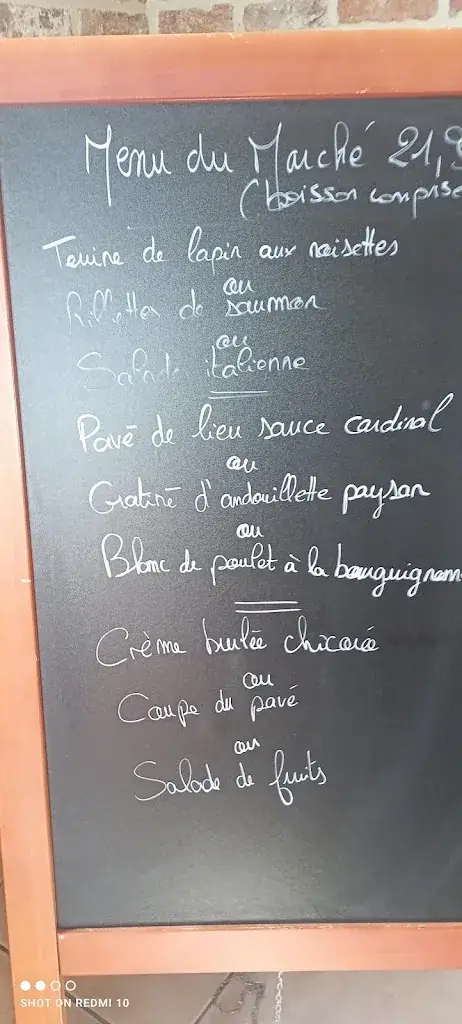 Menu du Marché 21,9
(boisson comprise
Terrine de lapin aux noisettes
ou
Rillettes de saumon
ou
Salade italienne
Pavé de lieu sauce cardinal
ou
Gratiné d'andouillette paysan
ou
Blanc de poulet à la bourguignonn
Crème brulée chicoré
ou
Coupe du pavé
ou
Salade de fruits
SHOT ON REDMI 10